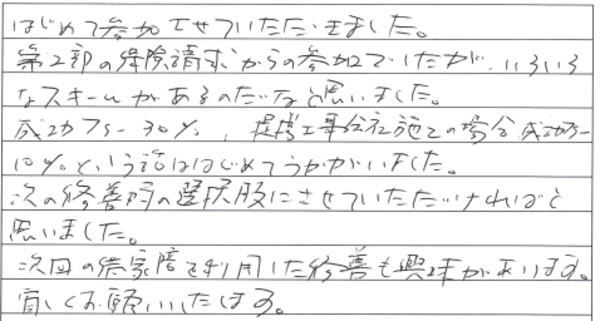 はじめて参加させていただきました。
第2部の保険請求からの参加でしたが、いろいろ
なスキームがあるのだなと思いました。
成功フィー30%、提携工事会社施工の場合成功フィー
10%という話ははじめてうかがいました。
次の修善時の選択股にさせていただければと
思いました。
次回の借家障を利用した修善も興味があります。
宜しくお願いいたします。